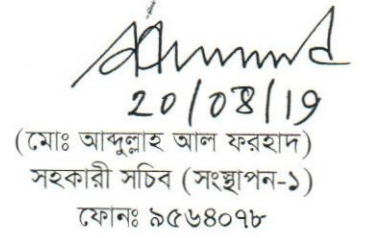 20/08/19
(মোঃ আব্দুল্লাহ আল ফরহাদ)
সহকারী সচিব (সংস্থাপন-১)
ফোনঃ ৯৫৬৪০৭৮